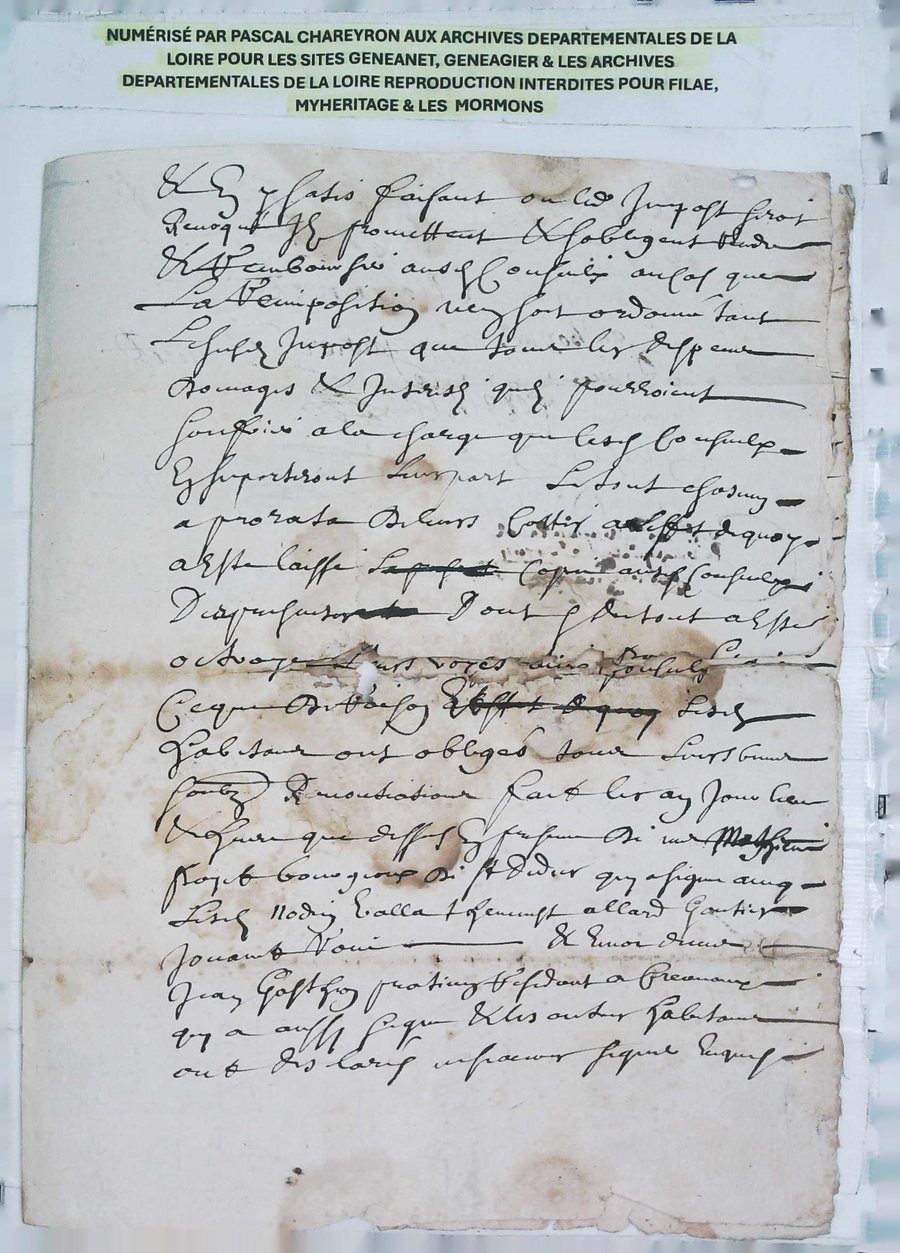 NUMÉRISÉ PAR PASCAL CHAREYRON AUX ARCHIVES DEPARTEMENTALES DE LA
LOIRE POUR LES SITES GENEANET, GENEAGIER & LES ARCHIVES
DEPARTEMENTALES DE LA LOIRE REPRODUCTION INTERDITES POUR FILAE,
MYHERITAGE & LES MORMONS
& En y satisfaisant ou led Impost seroit
Revoqué Ilz promettent & sobligent rendre
& Rembourser ausd Consulz au cas que
La Reimposition nen soit ordonné tant
Lesusd Impost que tous les despens
Domages & Interestz quilz pourroient
souffrir a la charge que lesd Consulz
En suporteront leur part Le tout chacun
a prorata de leurs Cottes a leffect de quoy
a este laissé Coppie ausd Consulz
Des presentes Dont & du tout a esté
octroyé
Ce que de Raison Lesd
habitans ont obligés tous leurs biens
soubz Renontiations fait les an Jour lieu
& heure que dessus En presence de me Mathieu
bourgeois de St Didier quy a signé avec
Lesd Nodin Valla allard Gontier
Jouant & moi
Jean praticien Residant a
quy a aussy signé & les autres habitans
ont declaré ne scavoir signer Enquis